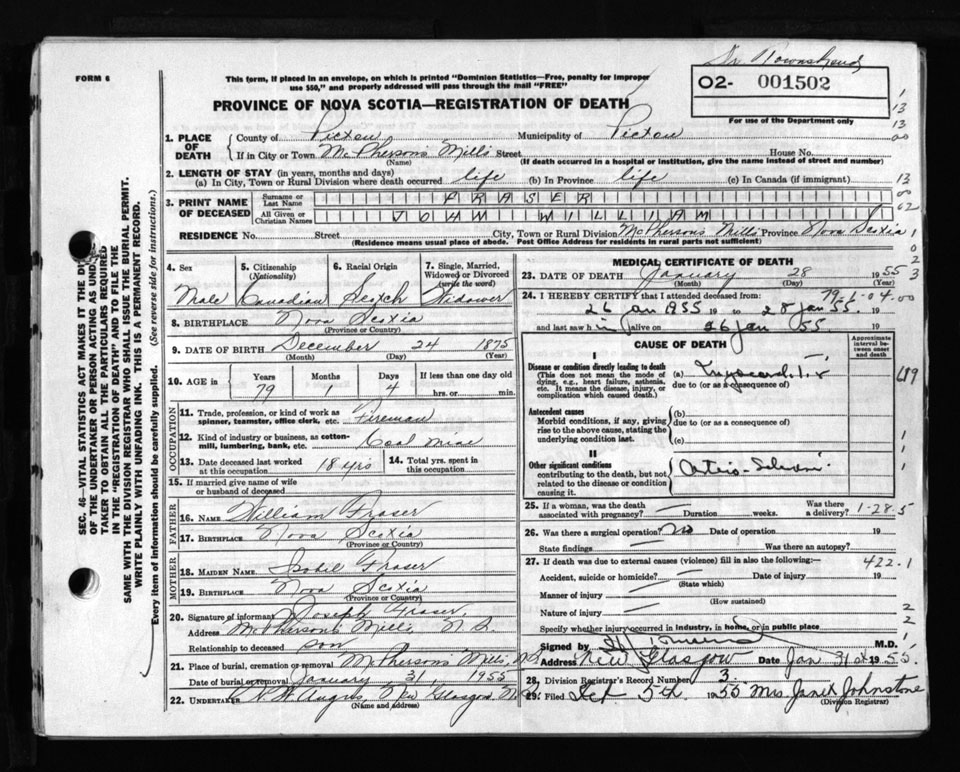 Dr Townshend
FORM 6
This form, if placed in an envelope, on which is printed "Dominion Statistics—Free, penalty for improper
use $50," and properly addressed will pass through the mail "FREE"
PROVINCE OF NOVA SCOTIA—REGISTRATION OF DEATH
02- 001502
For use of the Department only
1. PLACE OF DEATH County of Pictou Municipality of Pictou
If in City or Town McPherson's Mills Street House No.
(Name) (If death occurred in a hospital or institution, give the name instead of street and number)
2. LENGTH OF STAY (in years, months and days)
(a) In City, Town or Rural Division where death occurred life (b) In Province life (c) In Canada (if immigrant)
3. PRINT NAME OF DECEASED Surname or Last Name FRASER
All Given or Christian Names JOHN WILLIAM
RESIDENCE No. Street City, Town or Rural Division McPherson's Mills Province Nova Scotia
(Residence means usual place of abode. Post Office Address for residents in rural parts not sufficient)
4. Sex 5. Citizenship (Nationality) 6. Racial Origin 7. Single, Married, Widowed or Divorced (write the word)
Male Canadian Scotch Widower
8. BIRTHPLACE Nova Scotia
(Province or Country)
9. DATE OF BIRTH December 24 1875
(Month) (Day) (Year)
10. AGE in Years Months Days If less than one day old
79 1 4 hrs. or min.
OCCUPATION
11. Trade, profession, or kind of work as spinner, teamster, office clerk, etc. Fireman
12. Kind of industry or business, as cotton-mill, lumbering, bank, etc. Coal Mine
13. Date deceased last worked at this occupation 18 yrs 14. Total yrs. spent in this occupation
15. If married give name of wife or husband of deceased
FATHER
16. NAME William Fraser
17. BIRTHPLACE Nova Scotia
(Province or Country)
MOTHER
18. MAIDEN NAME Isobel Fraser
19. BIRTHPLACE Nova Scotia
(Province or Country)
20. Signature of informant Joseph Fraser,
Address McPherson's Mills, N.S.
Relationship to deceased son
21. Place of burial, cremation or removal McPherson's Mills, N.S.
Date of burial or removal January 31, 1955
22. UNDERTAKER Angus, New Glasgow, N.S.
(Name and address)
MEDICAL CERTIFICATE OF DEATH
23. DATE OF DEATH January 28 1955
(Month) (Day) (Year)
24. I HEREBY CERTIFY that I attended deceased from:
26 Jan 1955 19 to 28 Jan 55. 19
and last saw him alive on 26 Jan 55 19
CAUSE OF DEATH
Approximate interval between onset and death
I
Disease or condition directly leading to death (a)
(This does not mean the mode of dying, e.g., heart failure, asthenia, etc. It means the disease, injury, or complication which caused death.) due to (or as a consequence of)
Antecedent causes (b)
Morbid conditions, if any, giving rise to the above cause, stating the underlying condition last. due to (or as a consequence of)
(c)
II
Other significant conditions
contributing to the death, but not related to the disease or condition causing it.
25. If a woman, was the death associated with pregnancy? Duration weeks. Was there a delivery? 1-28-5
26. Was there a surgical operation? No Date of operation 19
State findings Was there an autopsy?
27. If death was due to external causes (violence) fill in also the following: 422.1
Accident, suicide or homicide? Date of injury 19
(State which)
Manner of injury
(How sustained)
Nature of injury
Specify whether injury occurred in industry, in home, or in public place
Signed by M.D.
Address New Glasgow Date Jan 31st 1955.
28. Division Registrar's Record Number 3.
29. Filed 5th. 1955 Mrs. Janet Johnstone
(Division Registrar)
SEC. 46—VITAL STATISTICS ACT MAKES IT THE
OF THE UNDERTAKER OR PERSON ACTING AS
TAKER TO OBTAIN ALL THE PARTICULARS REQUIRED
IN THE "REGISTRATION OF DEATH" AND TO FILE THE
SAME WITH THE DIVISION REGISTRAR WHO SHALL ISSUE THE BURIAL PERMIT.
WRITE PLAINLY WITH UNFADING INK. THIS IS A PERMANENT RECORD.
Every item of information should be carefully supplied. (See reverse side for instructions.)